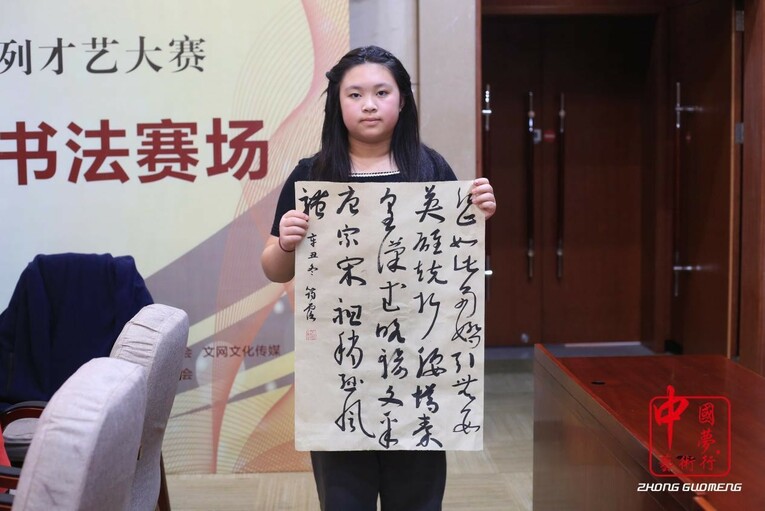 列才艺大赛
书法赛场
江山如此多娇引无数
英雄竞折腰惜秦
皇漢武略输文采
唐宗宋祖稍逊风
骚
辛丑冬
会 文网文化传媒
会
中國夢
藝術行
ZHONG GUOMENG